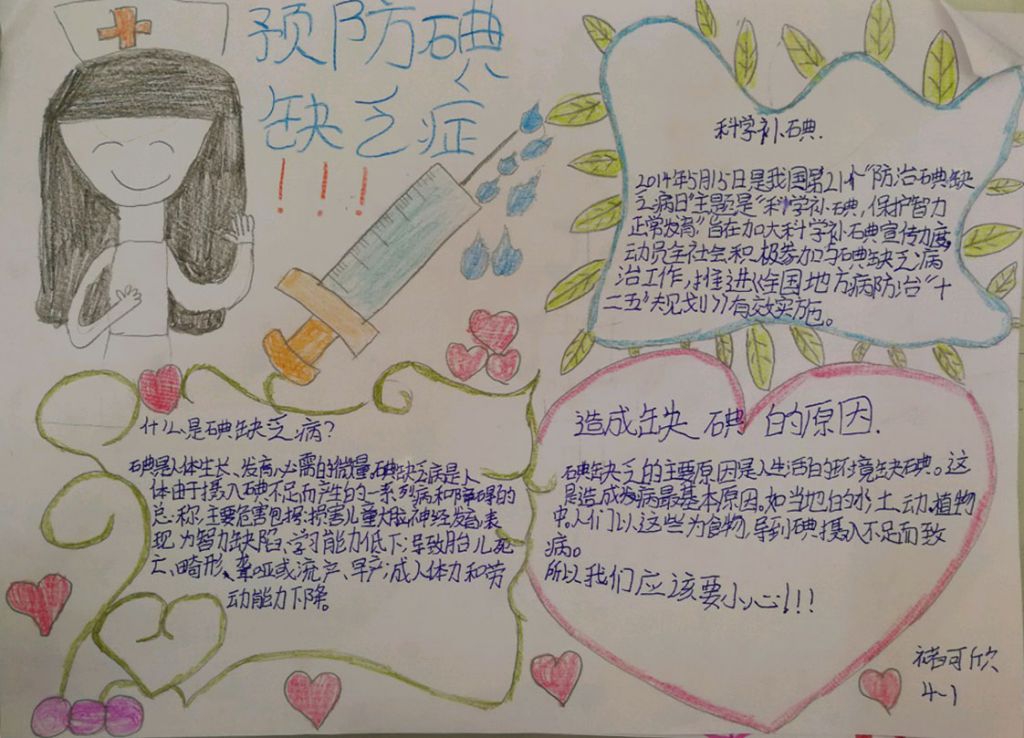 预防碘
缺乏症
!!!
科学补碘.
2014年5月15日是我国第21个“防治碘缺
乏病日”主题是“科学补碘,保护智力
正常发育”旨在加大科学补碘宣传力度,
动员全社会积极参加与碘缺乏病
治工作,推进《全国地方病防治“十
二五”规划》有效实施。
什么是碘缺乏病?
碘是人体生长、发育必需的微量,碘缺乏病是人
体由于摄入碘不足而产生的一系列病和障碍的
总称,主要危害包括:损害儿童大脑神经发育,表
现为智力缺陷、学习能力低下;导致胎儿死
亡、畸形、聋哑或流产、早产;成人体力和劳
动能力下降。
造成缺碘的原因.
碘缺乏的主要原因是人生活的环境缺碘。这
是造成疾病最基本原因。如当地的水土、动植物
中。人们以这些为食物,导到碘摄入不足而致
病。
所以我们应该要小心!!!
褚可欣
4-1